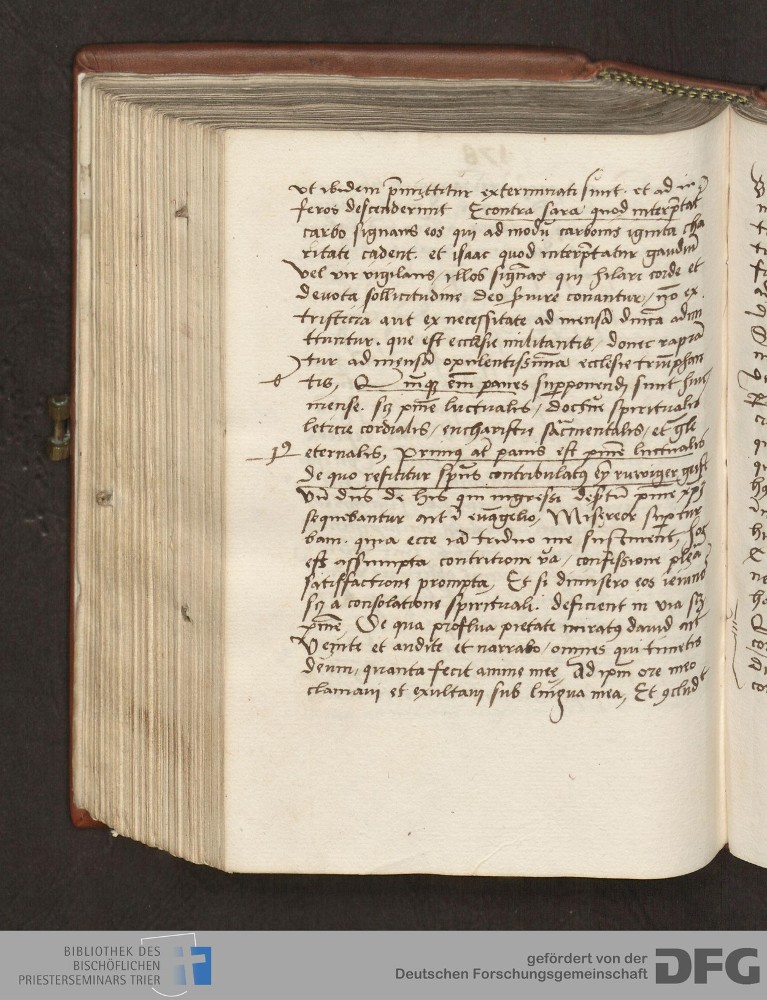 vt ibidem p̄mittitur exterminati sunt. et ad in
feros descenderunt Econtra sara quod interp̄tat̄
carbo signans eos qui ad modū carbonis ignita cha
ritate cadent. et isaac quod interp̄tatur gaudiū
vel vir vigilans / illos signās qui hilari corde et
deuota sollicitudine deo s̄uire conantur / nō ex
tristicia aut ex necessitate ad mensā dn̄icā adm
ttuntur. que est ecclesie militantis / donec rapiā
tur ad mensā opulentissimā ecclesie triūphan
tis, Quinq̄ em̄ panes supponendi sunt huic
mense. sz pāis luctualis / doctri spiritualis
leticie cordialis / eucharistie sac̄mentalis / et gl̄e
eternalis, Primus at̄ panis est luctualis
de quo reficitur sp̄us contribulatus
Vn̄ dn̄s de his qui ingressi
sequebantur ait ī euāgelio, Misereor sup tur
bam. quia ecce iā triduo me sustinent, hoc
est assumpta contritione v̄a / confessione plēa
satisfactione prompta, Et si dimisero eos ieiunos
sz a consolatione spirituali. deficient in via sz
De qua proflua pietate miratus dauid ait
Venite et audite et narrabo / omnes qui timetis
deum, quanta fecit anime mee, Ad ipm̄ ore meo
clamaui et exultaui sub lingua mea, Et 9clud
BIBLIOTHEK DES
BISCHÖFLICHEN
PRIESTERSEMINARS TRIER
gefördert von der
Deutschen Forschungsgemeinschaft
DFG